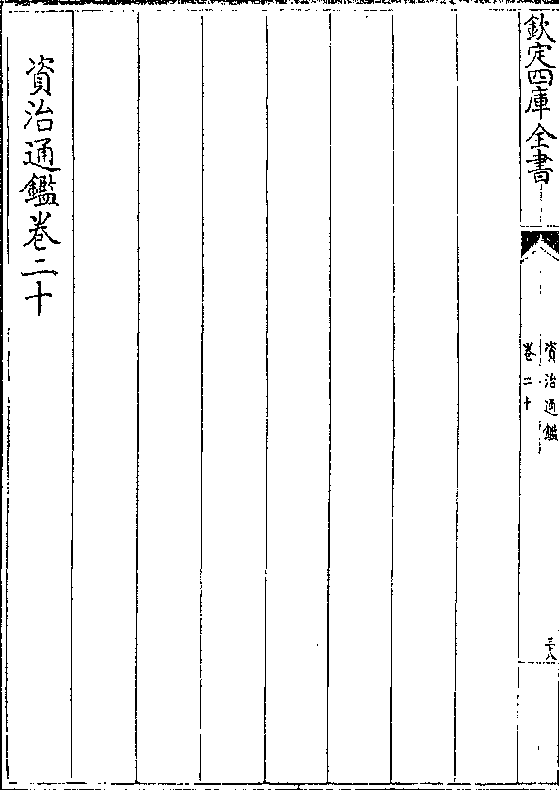 欽定四庫全書
資治通鑑
卷二十
三十八
資治通鑑卷二十